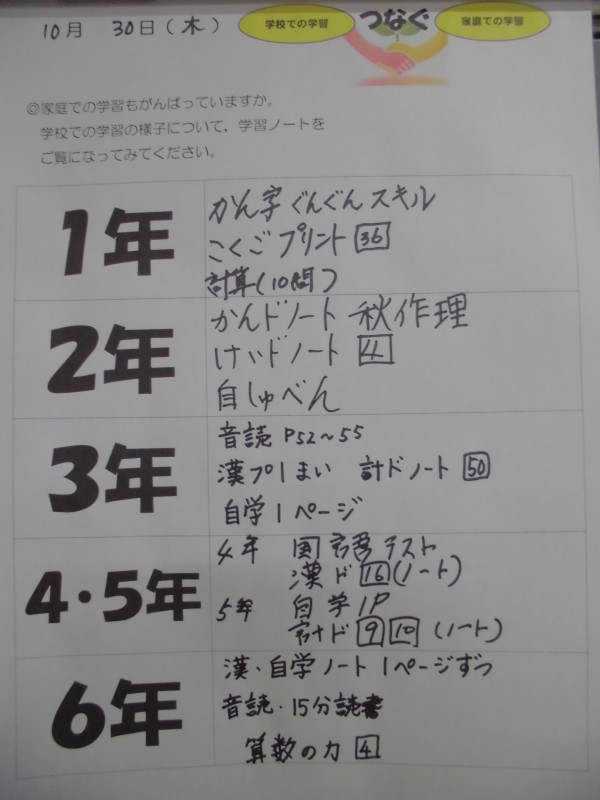 10月 30日(木)
学校での学習 つなぐ 家庭での学習
◎家庭での学習もがんばっていますか。
学校での学習の様子について,学習ノートを
ご覧になってみてください。
1年
かん字ぐんぐんスキル
こくごプリント 36
計算(10問)
2年
かんドノート 秋作理
けいドノート 4
自しゅべん
3年
音読 P52~55
漢プ1まい 計ドノート 50
自学1ページ
4・5年
4年 国語テスト
漢ド 16 (ノート)
5年 自学1P
計ド 9 10 (ノート)
6年
漢・自学ノート1ページずつ
音読・15分読書
算数の力 4